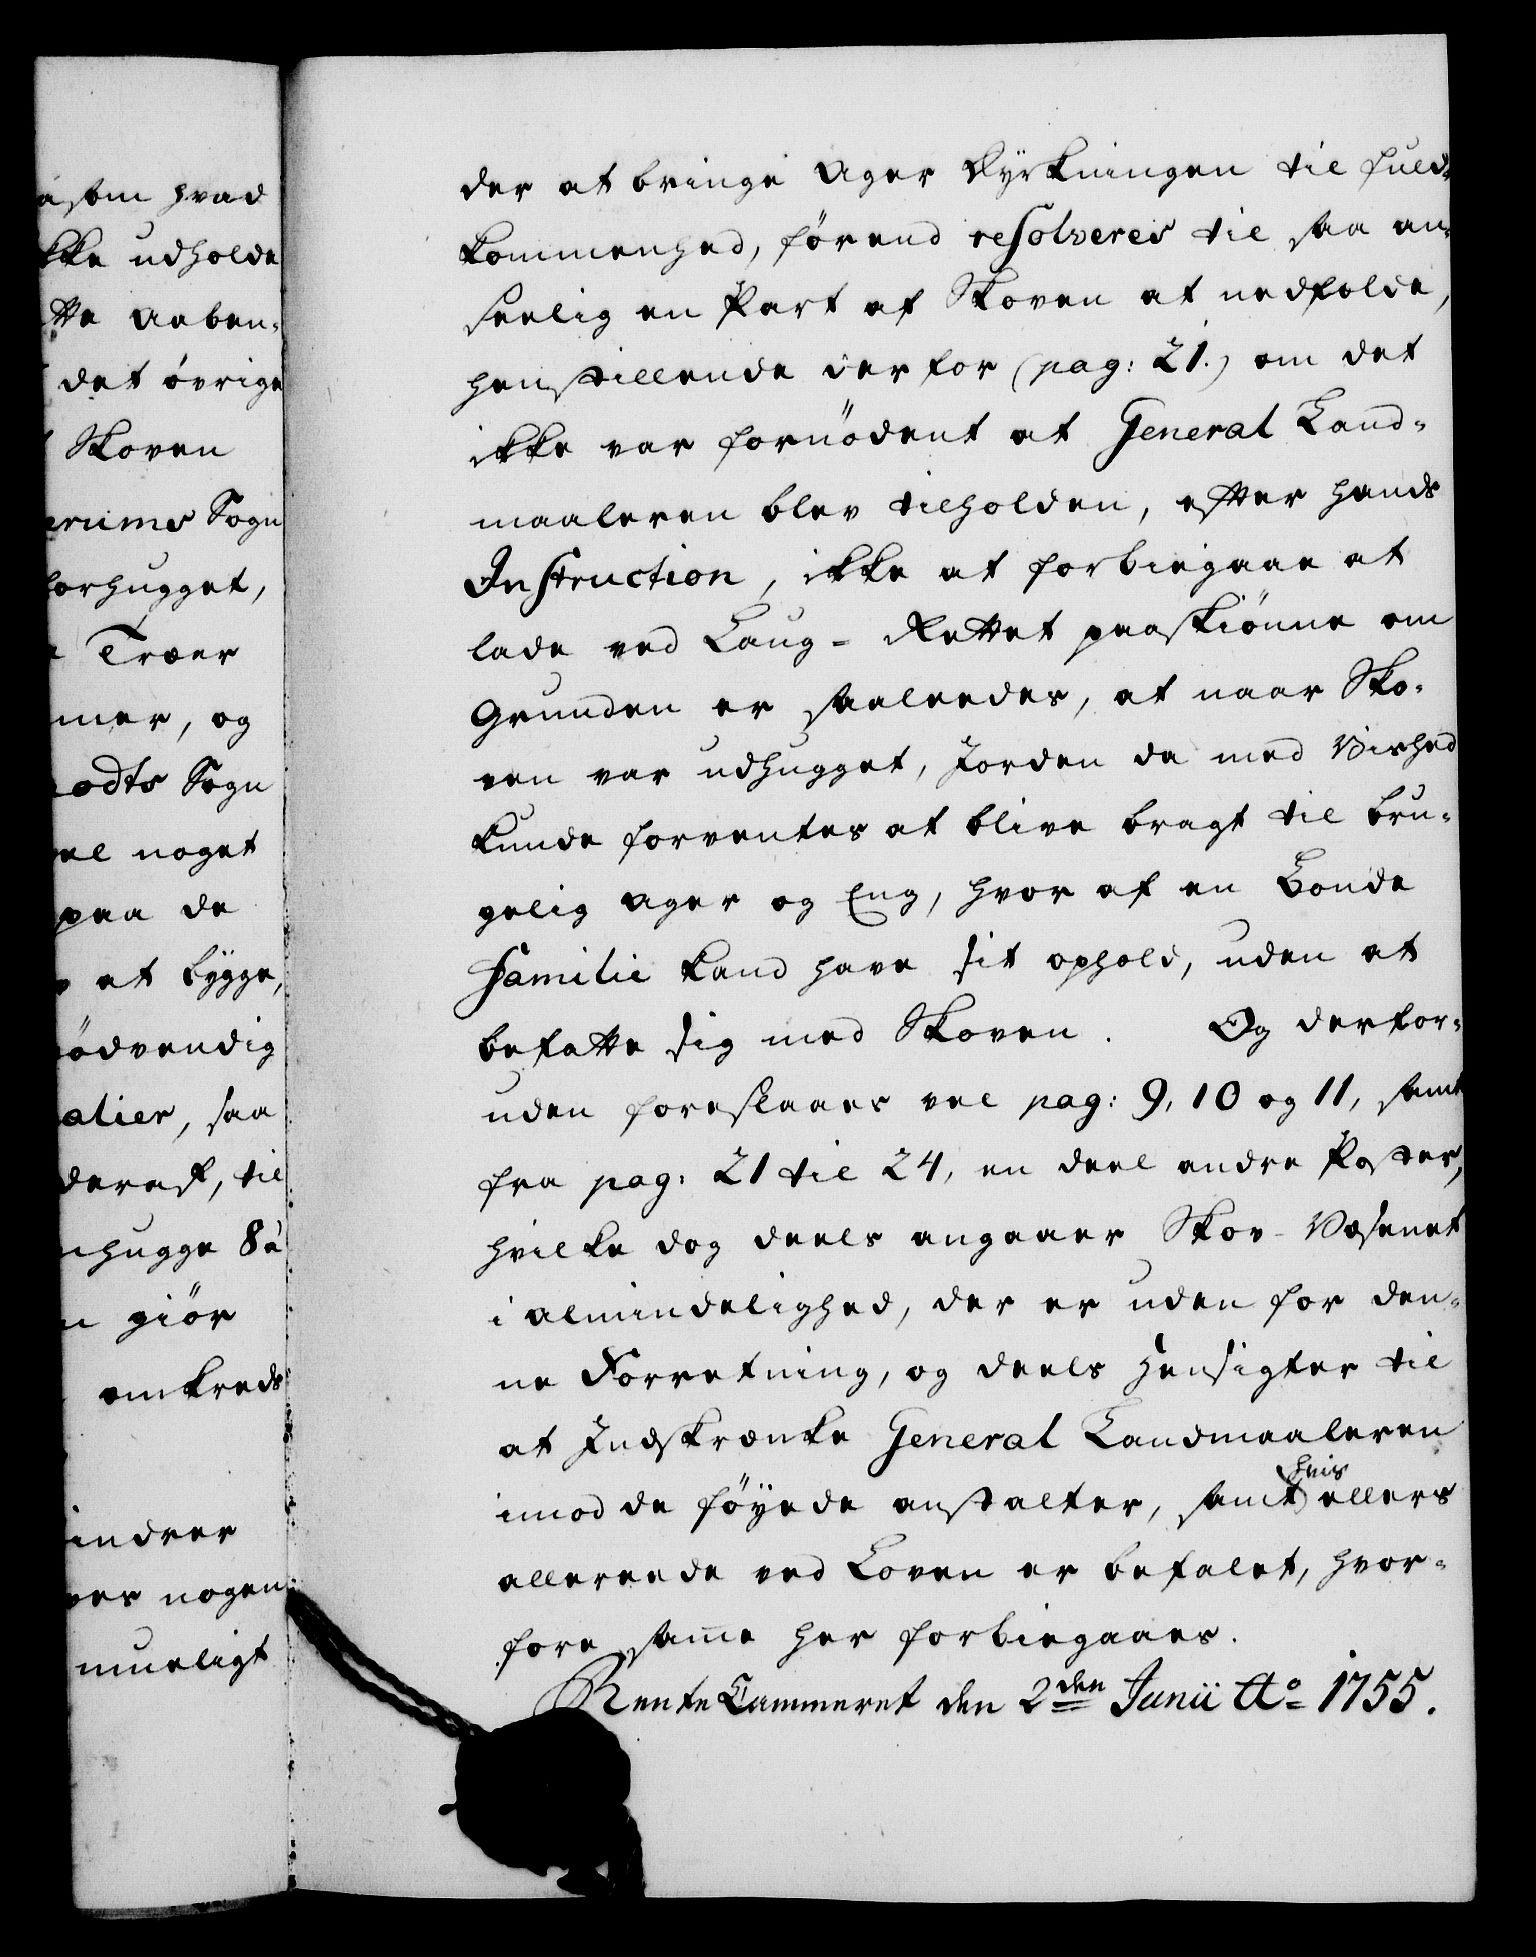 som hvad
ikke udholde
aaben-
det øvrige
Skoven
erums Sogn
forhugget,
Træer
mer, og
odts Sogn
vel noget
paa de
at bygge,
nødvendig
alier, saa
deraf, til
hugge 8 à
giör
omkreds
indrer
ver nogen
mueligt
der at bringe Ager Dyrkningen til fuld-
kommenhed, förend resolveres til saa an-
seelig en Part af Skoven at nedfælde,
henstillende derfor (pag: 21.) om det
ikke var fornödent at General Land-
maaleren blev tilholden, efter hands
Instruction, ikke at forbiegaae at
lade ved Laug-Rettet paaskiönne om
Grunden er saaleedes, at naar Sko-
ven var udhugget, Jorden da med Vished
kunde forventes at blive bragt til bru-
gelig Ager og Eng, hvor af en Bonde
Familie kand have sit ophold, uden at
befatte sig med Skoven. Og derfor-
uden foreslaaes vel pag: 9, 10 og 11, samt
fra pag: 21 til 24, en deel andre Poster,
hvilke dog deels angaaer Skov-Væsenet
i almindelighed, der er uden for den-
ne Forretning, og deels Hensigter til
at Indskrænke General Landmaaleren
imod de föyede anstalter, samt hvis ellers
allereede ved Loven er befalet, hvor-
fore same her forbiegaaes.
Rente Cammeret den 2den Junii Ao 1755.